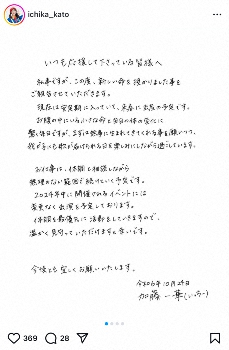 ichika_kato
いつも応援して下さっている皆様へ
私事ですが、この度、新しい命を授かりました事を
ご報告させていただきます。
現在は安定期に入っていて、来春に出産の予定です。
お腹の中にいる小さな命と自分の体の変化に
驚く毎日ですが、まずは無事に生まれてきてくれる事を願いつつ、
我が子と対面できる日を楽しみにしながら過ごしています。
お仕事は、体調と相談しながら
無理のない範囲で続けていく予定です。
2024年中に開催されるイベントには
変更なく出演を予定しております。
体調を最優先に活動をしていきますので、
温かく見守っていただけますと幸いです。
今後とも宜しくお願いいたします。
令和6年10月24日
加藤一華(いっちー)
369 28